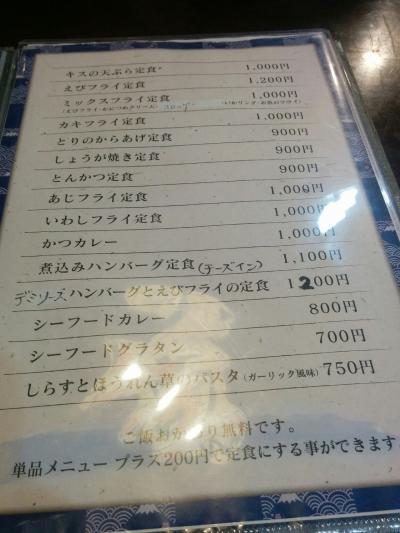 キスの天ぷら定食 1,000円
えびフライ定食 1,200円
ミックスフライ定食 1,000円
(えびフライ・かにつめクリーム) コロッケ (いかリング・お魚のフライ)
カキフライ定食 1,000円
とりのからあげ定食 900円
しょうが焼き定食 900円
とんかつ定食 900円
あじフライ定食 1,000円
いわしフライ定食 1,000円
かつカレー 1,000円
煮込みハンバーグ定食(チーズイン) 1,100円
デミソースハンバーグとえびフライの定食 1200円
シーフードカレー 800円
シーフードグラタン 700円
しらすとほうれん草のパスタ(ガーリック風味) 750円
ご飯おかわり無料です。
単品メニュー プラス200円で定食にする事ができます